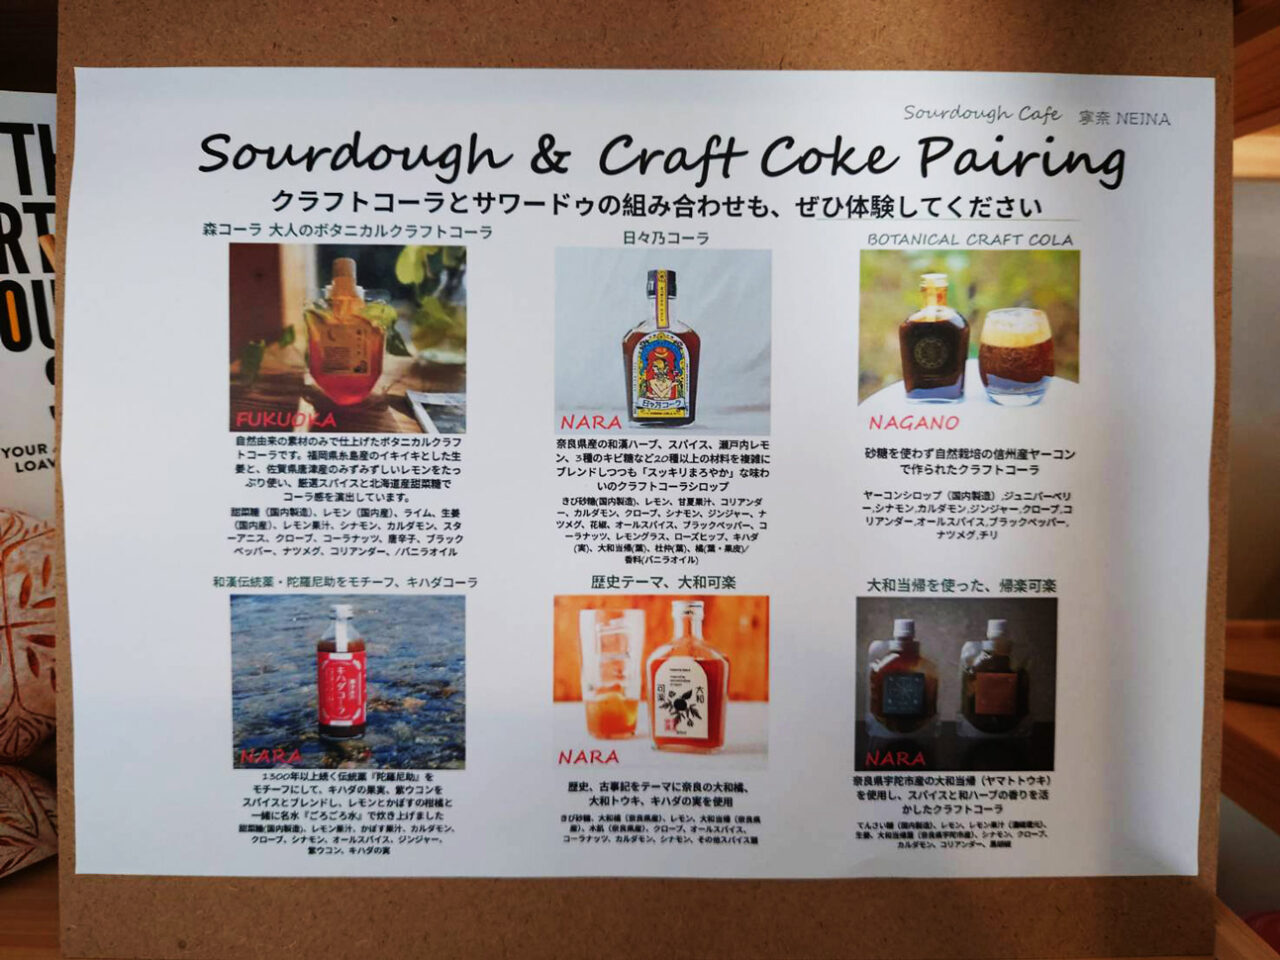 Sourdough Cafe 寧奈 NEINA
Sourdough & Craft Coke Pairing
クラフトコーラとサワードゥの組み合わせも、ぜひ体験してください
森コーラ 大人のボタニカルクラフトコーラ
FUKUOKA
自然由来の素材のみで仕上げたボタニカルクラフ
トコーラです。福岡県糸島産のイキイキとした生
姜と、佐賀県唐津産のみずみずしいレモンをたっ
ぷり使い、厳選スパイスと北海道産甜菜糖で
コーラ感を演出しています。
甜菜糖（国内製造）、レモン（国内産）、ライム、生姜
（国内産）、レモン果汁、シナモン、カルダモン、スタ
ーアニス、クローブ、コーラナッツ、唐辛子、ブラック
ペッパー、ナツメグ、コリアンダー、/バニラオイル
日々乃コーラ
日々乃コーラ
NARA
奈良県産の和漢ハーブ、スパイス、瀬戸内レモ
ン、3種のキビ糖など20種以上の材料を複雑に
ブレンドしつつも「スッキリまろやか」な味わ
いのクラフトコーラシロップ
きび砂糖(国内製造)、レモン、甘夏果汁、コリアンダ
ー、カルダモン、クローブ、シナモン、ジンジャー、ナ
ツメグ、花椒、オールスパイス、ブラックペッパー、コ
ーラナッツ、レモングラス、ローズヒップ、キハダ
(実)、大和当帰(葉)、杜仲(葉)、橘(葉・果皮)/
香料(バニラオイル)
BOTANICAL CRAFT COLA
NAGANO
砂糖を使わず自然栽培の信州産ヤーコン
で作られたクラフトコーラ
ヤーコンシロップ（国内製造）,ジュニパーベリ
ー,シナモン,カルダモン,ジンジャー,クローブ,コ
リアンダー,オールスパイス,ブラックペッパー,
ナツメグ,チリ
和漢伝統薬・陀羅尼助をモチーフ、キハダコーラ
キハダコーラ
NARA
1300年以上続く伝統薬『陀羅尼助』を
モチーフにして、キハダの果実、紫ウコンを
スパイスとブレンドし、レモンとかぼすの柑橘と
一緒に名水『ごろごろ水』で炊き上げました
甜菜糖(国内製造)、レモン果汁、かぼす果汁、カルダモン、
クローブ、シナモン、オールスパイス、ジンジャー、
紫ウコン、キハダの実
歴史テーマ、大和可楽
大和
可楽
NARA
歴史、古事記をテーマに奈良の大和橘、
大和トウキ、キハダの実を使用
きび砂糖、大和橘（奈良県産）、レモン、大和当帰（奈良県
産）、木肌（奈良県産）、クローブ、オールスパイス、
コーラナッツ、カルダモン、シナモン、その他スパイス類
大和当帰を使った、帰楽可楽
NARA
奈良県宇陀市産の大和当帰（ヤマトトウキ）
を使用し、スパイスと和ハーブの香りを活
かしたクラフトコーラ
てんさい糖（国内製造）、レモン、レモン果汁（濃縮還元）、
生姜、大和当帰葉（奈良県宇陀市産）、シナモン、クローブ、
カルダモン、コリアンダー、黒胡椒
YOUR